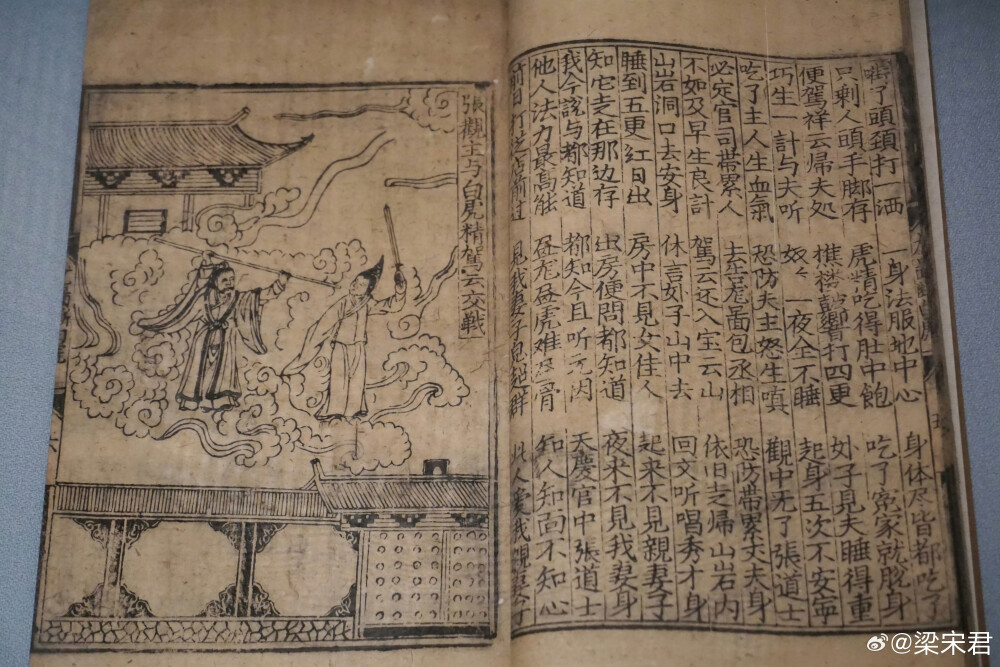 啃了頭頸打一洒 一身法服地中心 身体尽皆都吃了
只剩人頭手脚存 虎精吃得肚中飽 吃了冤家就脱身
便駕祥云歸夫処 樵楼鼓響打四更 妖子見夫睡得重
巧生一計与夫听 奴々一夜全不睡 起身五次不安寧
吃了主人生血氣 恐防夫主怒生嗔 觀中无了張道士
必定官司帶累人 去告龙啚包丞相 恐防帶累丈夫身
不如及早生良計 駕云还入宝云山 依旧走帰山石内
山岩洞口去安身 休言妖子山中去 回文听唱秀才身
睡到五更红日出 房中不見女佳人 起來不見親妻子
知它走在那边存 出房便問都知道 夜來不見我妻身
我今說与都知道 都知今且听元因 天慶官中張道士
他人法力最高能 昼龙昼虎难昼骨 知人知面不知心
前日打從店前过 見我妻子 群 人愛我親妻子
張觀主与白虎精駕云交戰
@梁宋君